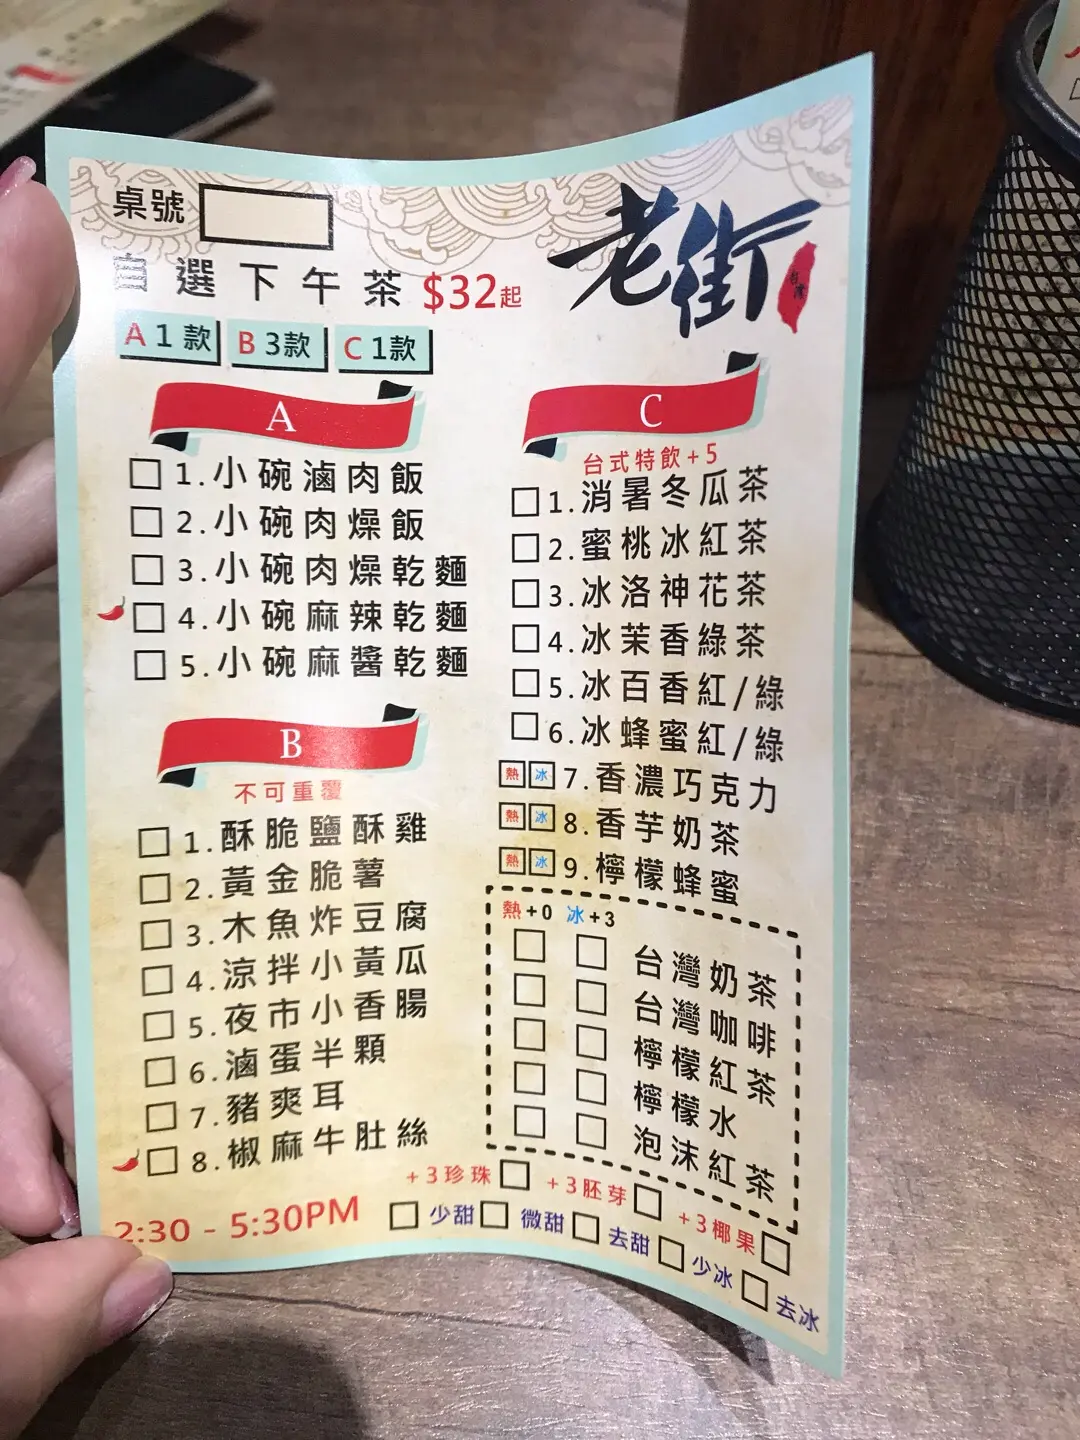 桌號
老街
台灣
自選下午茶 $32起
A 1款 B 3款 C 1款
A
1.小碗滷肉飯
2.小碗肉燥飯
3.小碗肉燥乾麵
4.小碗麻辣乾麵
5.小碗麻醬乾麵
B
不可重覆
1.酥脆鹽酥雞
2.黃金脆薯
3.木魚炸豆腐
4.涼拌小黃瓜
5.夜市小香腸
6.滷蛋半顆
7.豬爽耳
8.椒麻牛肚絲
2:30 - 5:30PM
C
台式特飲+5
1.消暑冬瓜茶
2.蜜桃冰紅茶
3.冰洛神花茶
4.冰茉香綠茶
5.冰百香紅/綠
6.冰蜂蜜紅/綠
熱 冰 7.香濃巧克力
熱 冰 8.香芋奶茶
熱 冰 9.檸檬蜂蜜
熱+0 冰+3
台灣奶茶
台灣咖啡
檸檬紅茶
檸檬水
泡沫紅茶
+3珍珠 +3胚芽 +3椰果
少甜 微甜 去甜 少冰 去冰